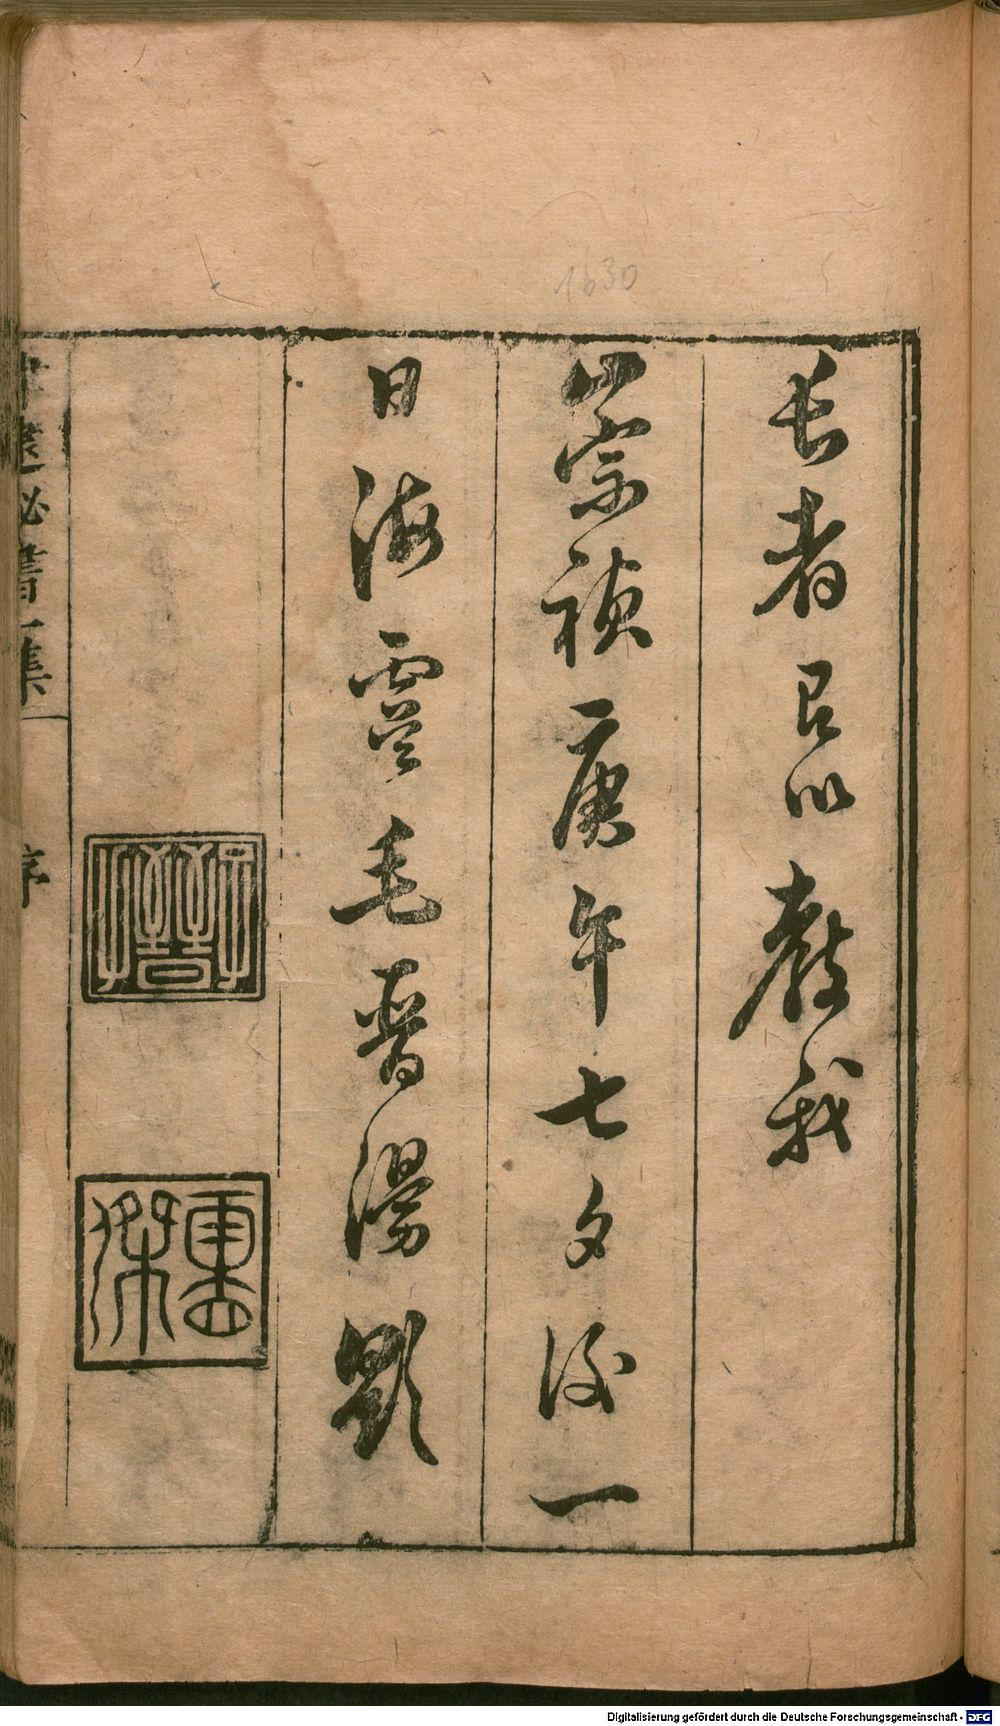 1630
长者以教我
崇禎庚午七夕後一
日海虞毛晉漫題
子晉
津逮祕書一集
序
Digitalisierung gefördert durch die Deutsche Forschungsgemeinschaft - DFG